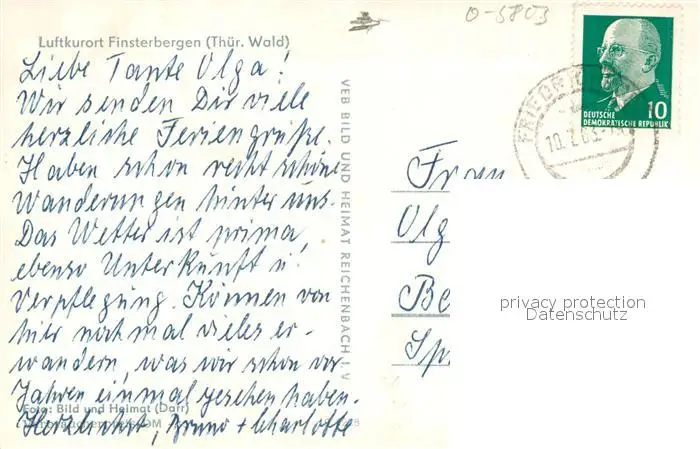 O-5803
Luftkurort Finsterbergen (Thür. Wald)
Liebe Tante Olga!
Wir senden Dir viele
herzliche Feriengrüße.
Haben schon recht schöne
Wanderungen hinter uns.
Das Wetter ist prima,
ebenso Unterkunft u.
Verpflegung. Können von
hier noch mal vieles er-
wandern, was wir schon vor
Jahren einmal gesehen haben.
Foto: Bild und Heimat (Darr)
Herzlichst, Bruno + Charlotte
VEB BILD UND HEIMAT REICHENBACH I. V
DEUTSCHE
DEMOKRATISCHE REPUBLIK
10
Frau
Olg
Be
Sp
privacy protection
Datenschutz